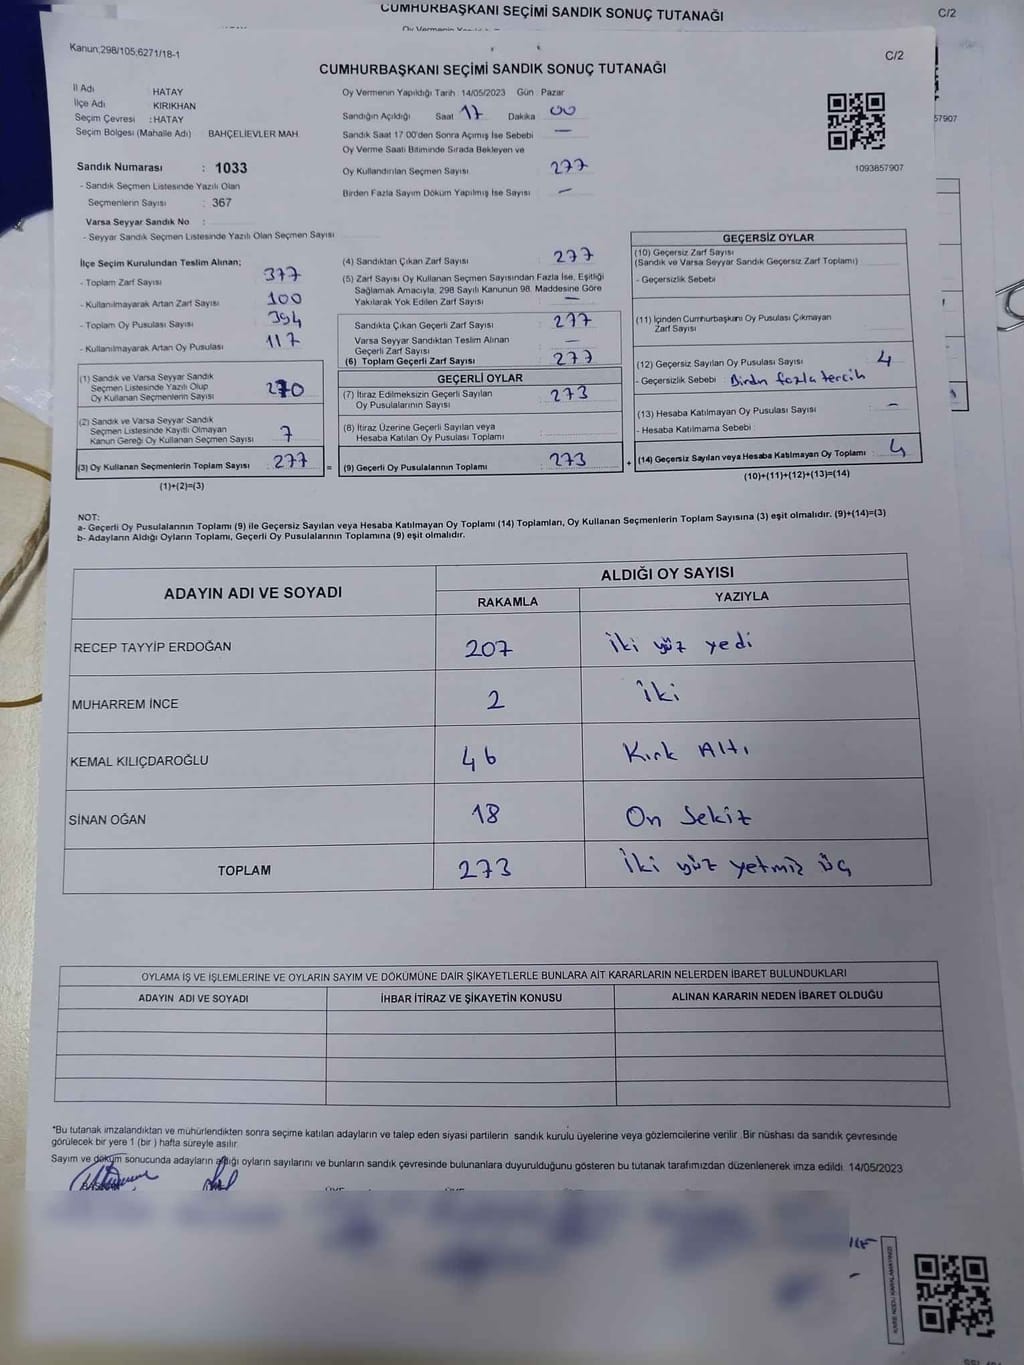 CUMHURBAŞKANI SEÇİMİ SANDIK SONUÇ TUTANAĞI
C/2
Kanun;298/105;6271/18-1
C/2
CUMHURBAŞKANI SEÇİMİ SANDIK SONUÇ TUTANAĞI
İl Adı : HATAY
İlçe Adı KIRIKHAN
Seçim Çevresi : HATAY
Seçim Bölgesi (Mahalle Adı) : BAHÇELİEVLER MAH.
Sandık Numarası : 1033
- Sandık Seçmen Listesinde Yazılı Olan
Seçmenlerin Sayısı : 367
Varsa Seyyar Sandık No :
- Seyyar Sandık Seçmen Listesinde Yazılı Olan Seçmen Sayısı
Oy Vermenin Yapıldığı Tarih : 14/05/2023 Gün : Pazar
Sandığın Açıldığı Saat 17 Dakika 00
Sandık Saat 17 00'den Sonra Açımış İse Sebebi —
Oy Verme Saati Bitiminde Sırada Bekleyen ve
Oy Kullandırılan Seçmen Sayısı 277
Birden Fazla Sayım Döküm Yapılmış İse Sayısı —
1093857907
57907
İlçe Seçim Kurulundan Teslim Alınan;
- Toplam Zarf Sayısı 377
- Kullanılmayarak Artan Zarf Sayısı 100
- Toplam Oy Pusulası Sayısı 394
- Kullanılmayarak Artan Oy Pusulası 117
(1) Sandık ve Varsa Seyyar Sandık
Seçmen Listesinde Yazılı Olup
Oy Kullanan Seçmenlerin Sayısı 270
(2) Sandık ve Varsa Seyyar Sandık
Seçmen Listesinde Kayıtlı Olmayan
Kanun Gereği Oy Kullanan Seçmen Sayısı 7
(3) Oy Kullanan Seçmenlerin Toplam Sayısı : 277
(1)+(2)=(3)
(4) Sandıktan Çıkan Zarf Sayısı : 277
(5) Zarf Sayısı Oy Kullanan Seçmen Sayısından Fazla İse, Eşitliği
Sağlamak Amacıyla, 298 Sayılı Kanunun 98. Maddesine Göre
Yakılarak Yok Edilen Zarf Sayısı —
Sandıkta Çıkan Geçerli Zarf Sayısı : 277
Varsa Seyyar Sandıktan Teslim Alınan
Geçerli Zarf Sayısı —
(6) Toplam Geçerli Zarf Sayısı : 277
GEÇERLİ OYLAR
(7) İtiraz Edilmeksizin Geçerli Sayılan
Oy Pusulalarının Sayısı : 273
(8) İtiraz Üzerine Geçerli Sayılan veya
Hesaba Katılan Oy Pusulası Toplamı
= (9) Geçerli Oy Pusulalarının Toplamı : 273 +
GEÇERSİZ OYLAR
(10) Geçersiz Zarf Sayısı
(Sandık ve Varsa Seyyar Sandık Geçersiz Zarf Toplamı)
- Geçersizlik Sebebi
(11) İçinden Cumhurbaşkanı Oy Pusulası Çıkmayan
Zarf Sayısı
(12) Geçersiz Sayılan Oy Pusulası Sayısı : 4
- Geçersizlik Sebebi : Birdn fazla tercih
(13) Hesaba Katılmayan Oy Pusulası Sayısı : —
- Hesaba Katılmama Sebebi :
(14) Geçersiz Sayılan veya Hesaba Katılmayan Oy Toplamı : 4
(10)+(11)+(12)+(13)=(14)
NOT:
a- Geçerli Oy Pusulalarının Toplamı (9) ile Geçersiz Sayılan veya Hesaba Katılmayan Oy Toplamı (14) Toplamları, Oy Kullanan Seçmenlerin Toplam Sayısına (3) eşit olmalıdır. (9)+(14)=(3)
b- Adayların Aldığı Oyların Toplamı, Geçerli Oy Pusulalarının Toplamına (9) eşit olmalıdır.
ADAYIN ADI VE SOYADI
ALDIĞI OY SAYISI
RAKAMLA YAZIYLA
RECEP TAYYİP ERDOĞAN 207 İki yüz yedi
MUHARREM İNCE 2 İki
KEMAL KILIÇDAROĞLU 46 Kırk Altı
SİNAN OĞAN 18 On Sekiz
TOPLAM 273 İki yüz yetmiş üç
OYLAMA İŞ VE İŞLEMLERİNE VE OYLARIN SAYIM VE DÖKÜMÜNE DAİR ŞİKAYETLERLE BUNLARA AİT KARARLARIN NELERDEN İBARET BULUNDUKLARI
ADAYIN ADI VE SOYADI İHBAR İTİRAZ VE ŞİKAYETİN KONUSU ALINAN KARARIN NEDEN İBARET OLDUĞU
*Bu tutanak imzalandıktan ve mühürlendikten sonra seçime katılan adayların ve talep eden siyasi partilerin sandık kurulu üyelerine veya gözlemcilerine verilir. Bir nüshası da sandık çevresinde
görülecek bir yere 1 (bir ) hafta süreyle asılır.
Sayım ve döküm sonucunda adayların aldığı oyların sayılarını ve bunların sandık çevresinde bulunanlara duyurulduğunu gösteren bu tutanak tarafımızdan düzenlenerek imza edildi. 14/05/2023